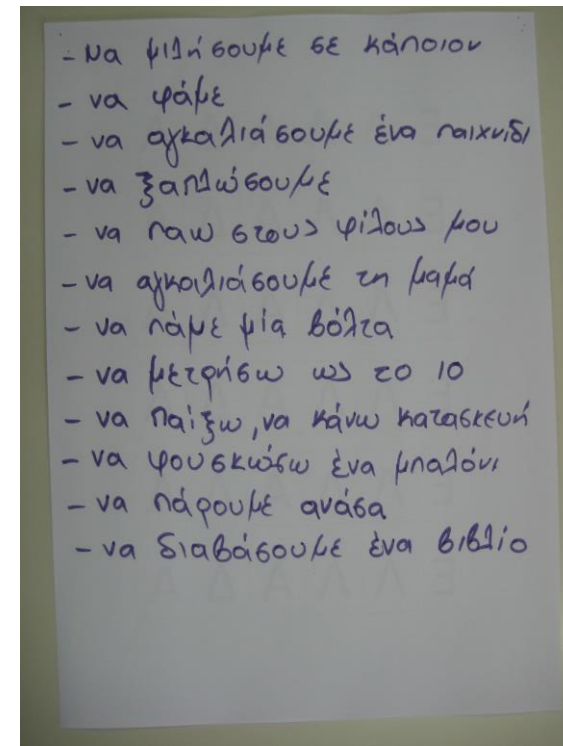 - Να μιλήσουμε σε κάποιον
- να φάμε
- να αγκαλιάσουμε ένα παιχνίδι
- να ξαπλώσουμε
- να παω στους φίλους μου
- να αγκαλιάσουμε τη μαμά
- να πάμε μία βόλτα
- να μετρήσω ως το 10
- να παίξω, να κάνω κατασκευή
- να φουσκώσω ένα μπαλόνι
- να πάρουμε ανάσα
- να διαβάσουμε ένα βιβλίο